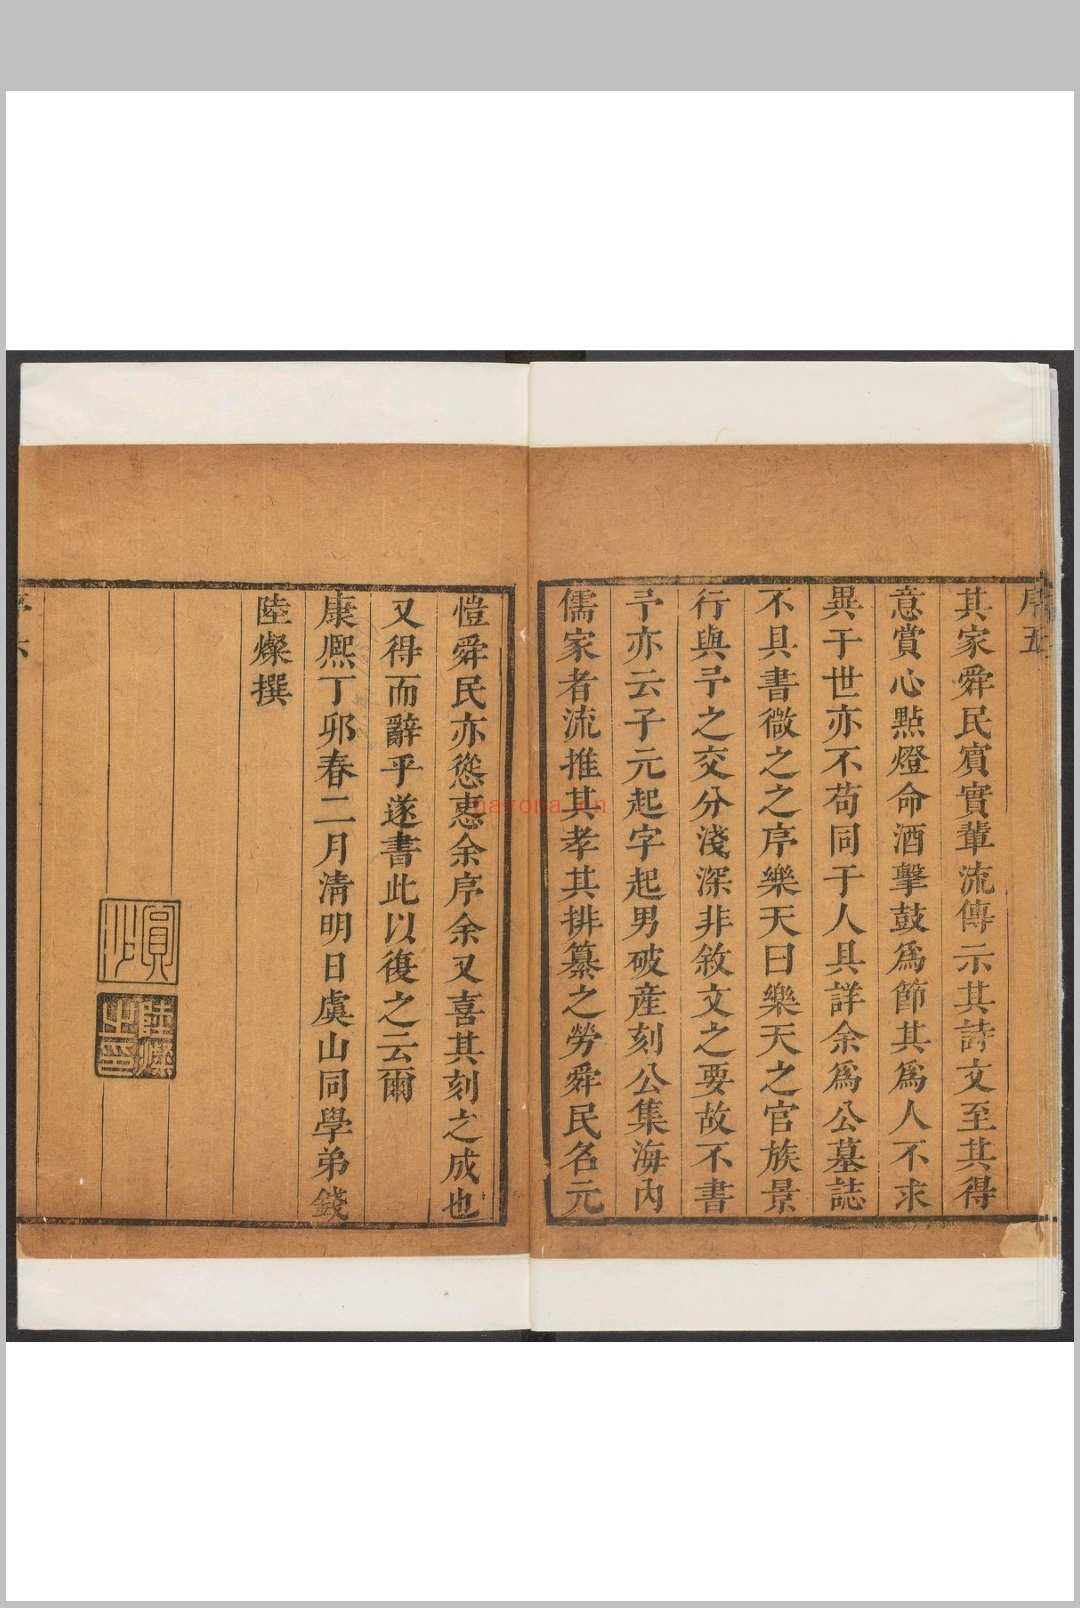 序五
其家舜民賔實輩流傳示其詩文至其得
意賞心點燈命酒擊鼓爲節其爲人不求
異于世亦不苟同于人具詳余爲公墓誌
不具書微之之序樂天曰樂天之官族景
行與予之交分淺深非敘文之要故不書
予亦云子元起字起男破產刻公集海內
儒家者流推其孝其排纂之勞舜民名元
愷舜民亦慫恿余序余又喜其刻之成也
又得而辭乎遂書此以復之云爾
康熙丁卯春二月清明日虞山同學弟錢
陸燦撰
圓沙
陸燦之印
nayona.cn